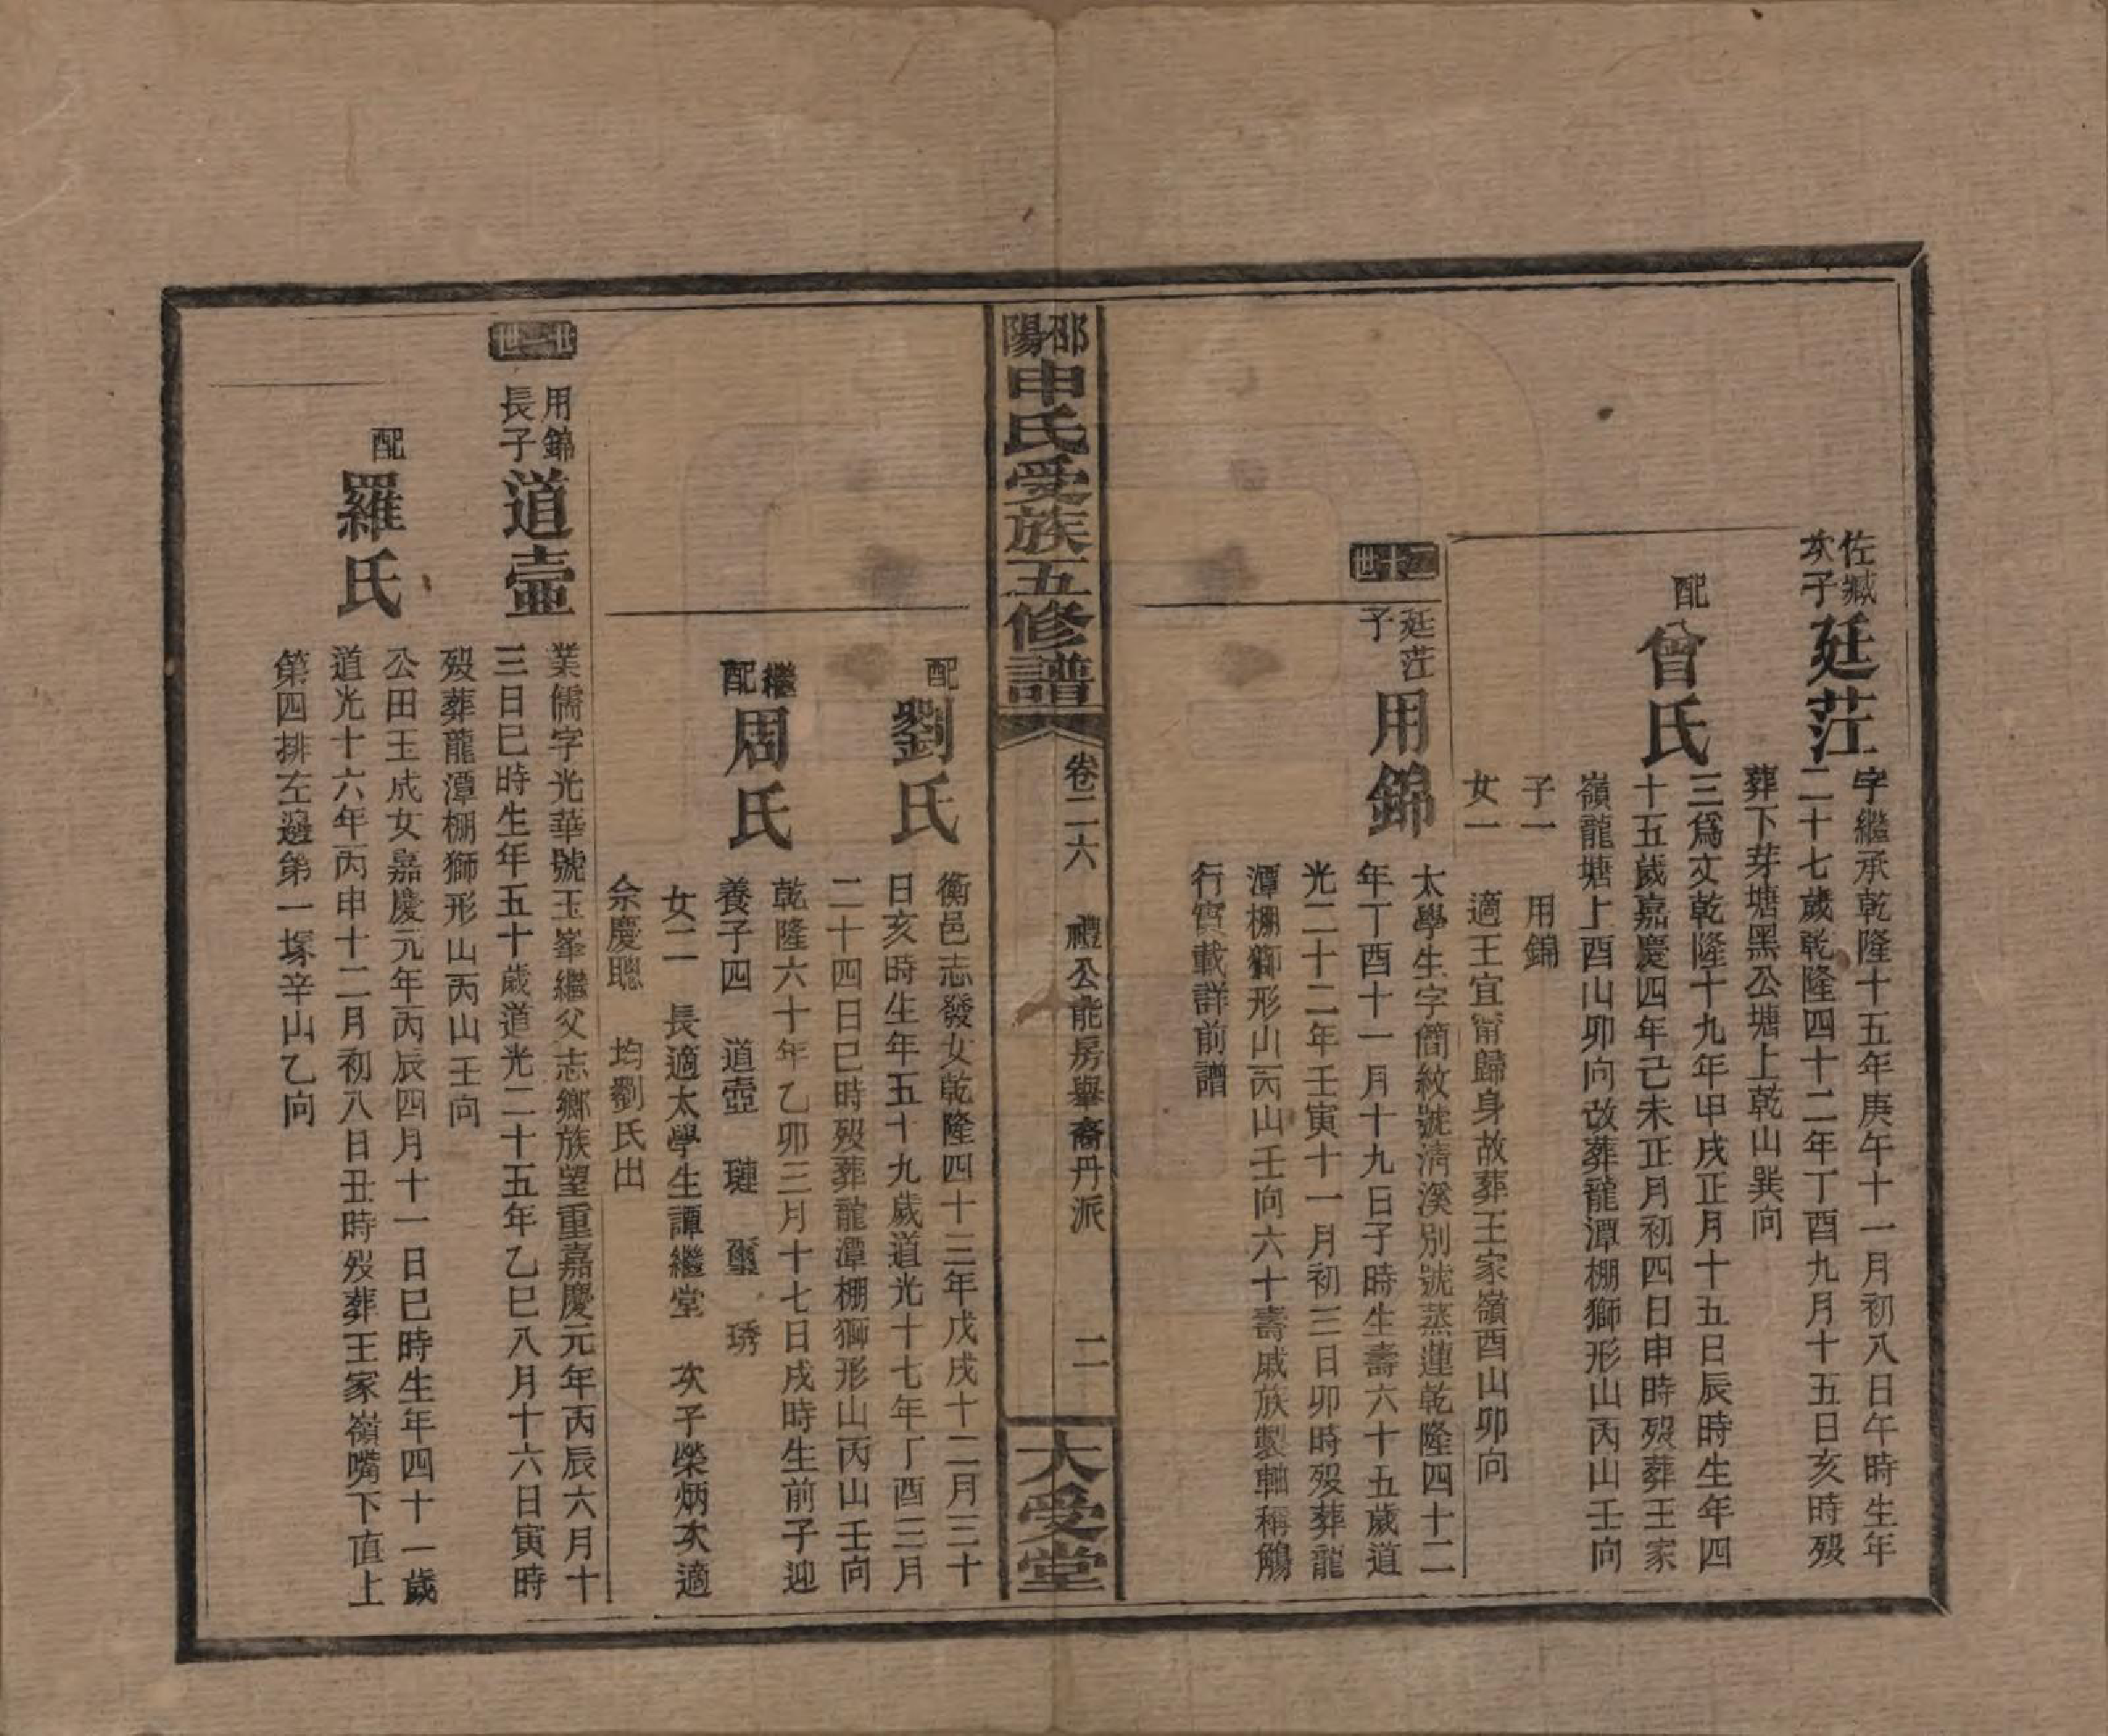 佐臧
次子
廷茳
字繼承乾隆十五年庚午十一月初八日午時生年
二十七歲乾隆四十二年丁酉九月十五日亥時殁
葬下芽塘黑公塘上乾山巽向
配
曾氏
三為女乾隆十九年甲戌正月十五日辰時生年四
十五歲嘉慶四年己未正月初四日申時殁葬王家
嶺龍塘上酉山卯向改葬龍潭棚獅形山丙山壬向
子一 用錦
女一 適王宜甯歸身故葬王家嶺酉山卯向
二十世
廷茳
子
用錦
太學生字簡紋號清溪別號蒸蓮乾隆四十二
年丁酉十一月十九日子時生壽六十五歲道
光二十二年壬寅十一月初三日卯時殁葬龍
潭棚獅形山丙山壬向六十壽戚族製軸稱觴
行實載詳前譜
邵陽申氏受族五修譜
卷二六 禮公能房舉裔丹派 二
大受堂
配
劉氏
衡邑志發女乾隆四十三年戊戌十二月三十
日亥時生年五十九歲道光十七年丁酉三月
二十四日巳時殁葬龍潭棚獅形山丙山壬向
繼
配
周氏
乾隆六十年乙卯三月十七日戌時生前子迎
養子四 道壺 璉 璽 琇
女二 長適太學生譚繼堂 次子榮炳次適
佘慶聰 均劉氏出
廿一世
用錦
長子
道壺
業儒字光華號玉峯繼父志鄉族望重嘉慶元年丙辰六月十
三日巳時生年五十歲道光二十五年乙巳八月十六日寅時
殁葬龍潭棚獅形山丙山壬向
配
羅氏
公田玉成女嘉慶元年丙辰四月十一日巳時生年四十一歲
道光十六年丙申十二月初八日丑時殁葬王家嶺嘴下直上
第四排左邊第一塚辛山乙向